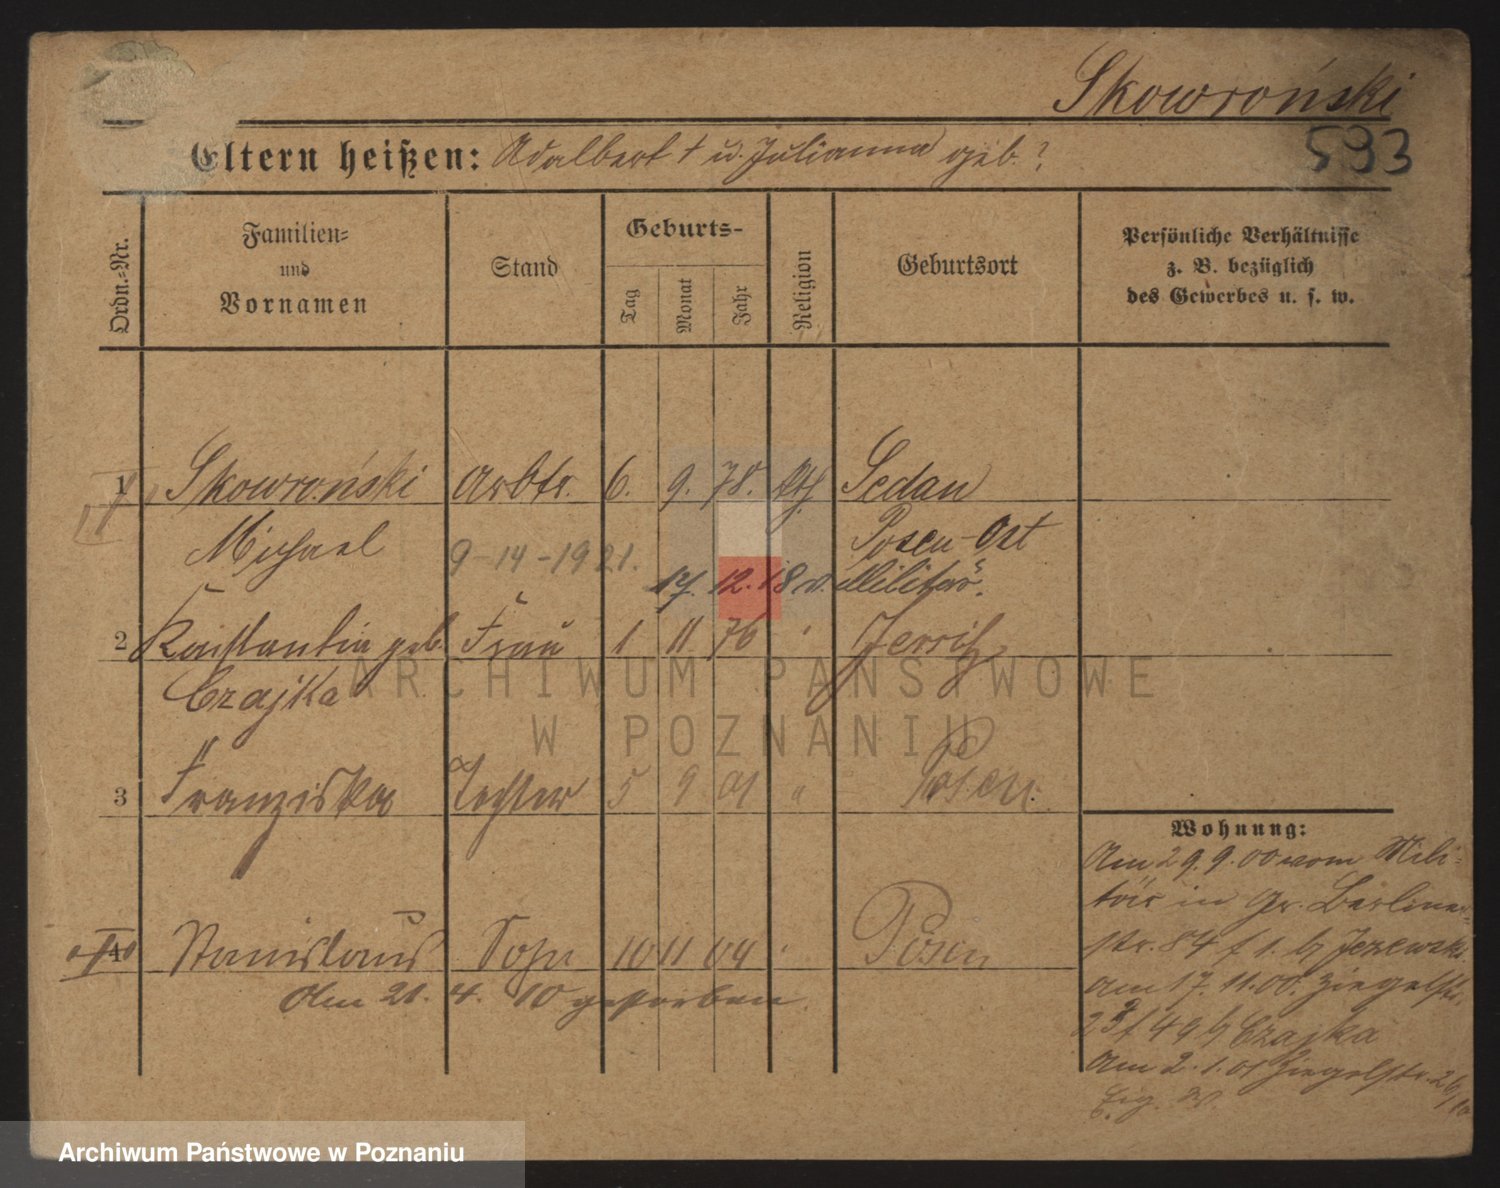 Skowroński
593
Eltern heißen: Adalbert † u. Julianna geb. ?
Ordn.-Nr.
Familien-
und
Vornamen
Stand
Geburts-
Tag
Monat
Jahr
Religion
Geburtsort
Persönliche Verhältnisse
z. B. bezüglich
des Gewerbes u. s. w.
1 Skowroński Arbtr. 6. 9. 78. kth Sedan
Michael Posen-Ost
9-14-1921.
17. 12. 18 v. Militär.
2 Konstantia geb. Frau 1 11 76 " Jersitz
Czajka
3 Franziska Tochter 5 9 01 " Posen
4 Stanislaus Sohn 10 11 04 " Posen
Am 21. 4. 10 gestorben
Wohnung:
Am 29.9.00 vom Mili-
tär in Gr. Berliner-
str. 84 f 1. b/ Jezewski
am 17. 11. 00. Ziegelstr.
23 f 49 b/ Czajka
Am 2. 1. 01 Ziegelstr. 26/10
Eig. W
ARCHIWUM PAŃSTWOWE
W POZNANIU
Archiwum Państwowe w Poznaniu